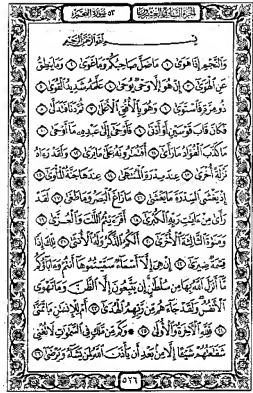 الجزء السابع والعشرون ٥٣ سورة النجم
بسم الله الرحمن الرحيم
وَالنَّجْمِ إِذَا هَوَىٰ ١ مَا ضَلَّ صَاحِبُكُمْ وَمَا غَوَىٰ ٢ وَمَا يَنطِقُ
عَنِ الْهَوَىٰ ٣ إِنْ هُوَ إِلَّا وَحْيٌ يُوحَىٰ ٤ عَلَّمَهُ شَدِيدُ الْقُوَىٰ ٥
ذُو مِرَّةٍ فَاسْتَوَىٰ ٦ وَهُوَ بِالْأُفُقِ الْأَعْلَىٰ ٧ ثُمَّ دَنَا فَتَدَلَّىٰ ٨
فَكَانَ قَابَ قَوْسَيْنِ أَوْ أَدْنَىٰ ٩ فَأَوْحَىٰ إِلَىٰ عَبْدِهِ مَا أَوْحَىٰ ١٠
مَا كَذَبَ الْفُؤَادُ مَا رَأَىٰ ١١ أَفَتُمَٰرُونَهُ عَلَىٰ مَا يَرَىٰ ١٢ وَلَقَدْ رَءَاهُ
نَزْلَةً أُخْرَىٰ ١٣ عِندَ سِدْرَةِ الْمُنتَهَىٰ ١٤ عِندَهَا جَنَّةُ الْمَأْوَىٰ ١٥
إِذْ يَغْشَى السِّدْرَةَ مَا يَغْشَىٰ ١٦ مَا زَاغَ الْبَصَرُ وَمَا طَغَىٰ ١٧ لَقَدْ
رَأَىٰ مِنْ ءَايَٰتِ رَبِّهِ الْكُبْرَىٰ ١٨ أَفَرَءَيْتُمُ اللَّٰتَ وَالْعُزَّىٰ ١٩
وَمَنَوٰةَ الثَّالِثَةَ الْأُخْرَىٰ ٢٠ أَلَكُمُ الذَّكَرُ وَلَهُ الْأُنثَىٰ ٢١ تِلْكَ إِذًا
قِسْمَةٌ ضِيزَىٰ ٢٢ إِنْ هِيَ إِلَّا أَسْمَاءٌ سَمَّيْتُمُوهَا أَنتُمْ وَءَابَاؤُكُم
مَّا أَنزَلَ اللَّهُ بِهَا مِن سُلْطَٰنٍ إِن يَتَّبِعُونَ إِلَّا الظَّنَّ وَمَا تَهْوَى
الْأَنفُسُ وَلَقَدْ جَاءَهُم مِّن رَّبِّهِمُ الْهُدَىٰ ٢٣ أَمْ لِلْإِنسَٰنِ مَا تَمَنَّىٰ
٢٤ فَلِلَّهِ الْءَاخِرَةُ وَالْأُولَىٰ ٢٥ وَكَم مِّن مَّلَكٍ فِي السَّمَٰوَٰتِ لَا تُغْنِي
شَفَٰعَتُهُمْ شَيْئًا إِلَّا مِن بَعْدِ أَن يَأْذَنَ اللَّهُ لِمَن يَشَاءُ وَيَرْضَىٰ ٢٦
٥٢٦